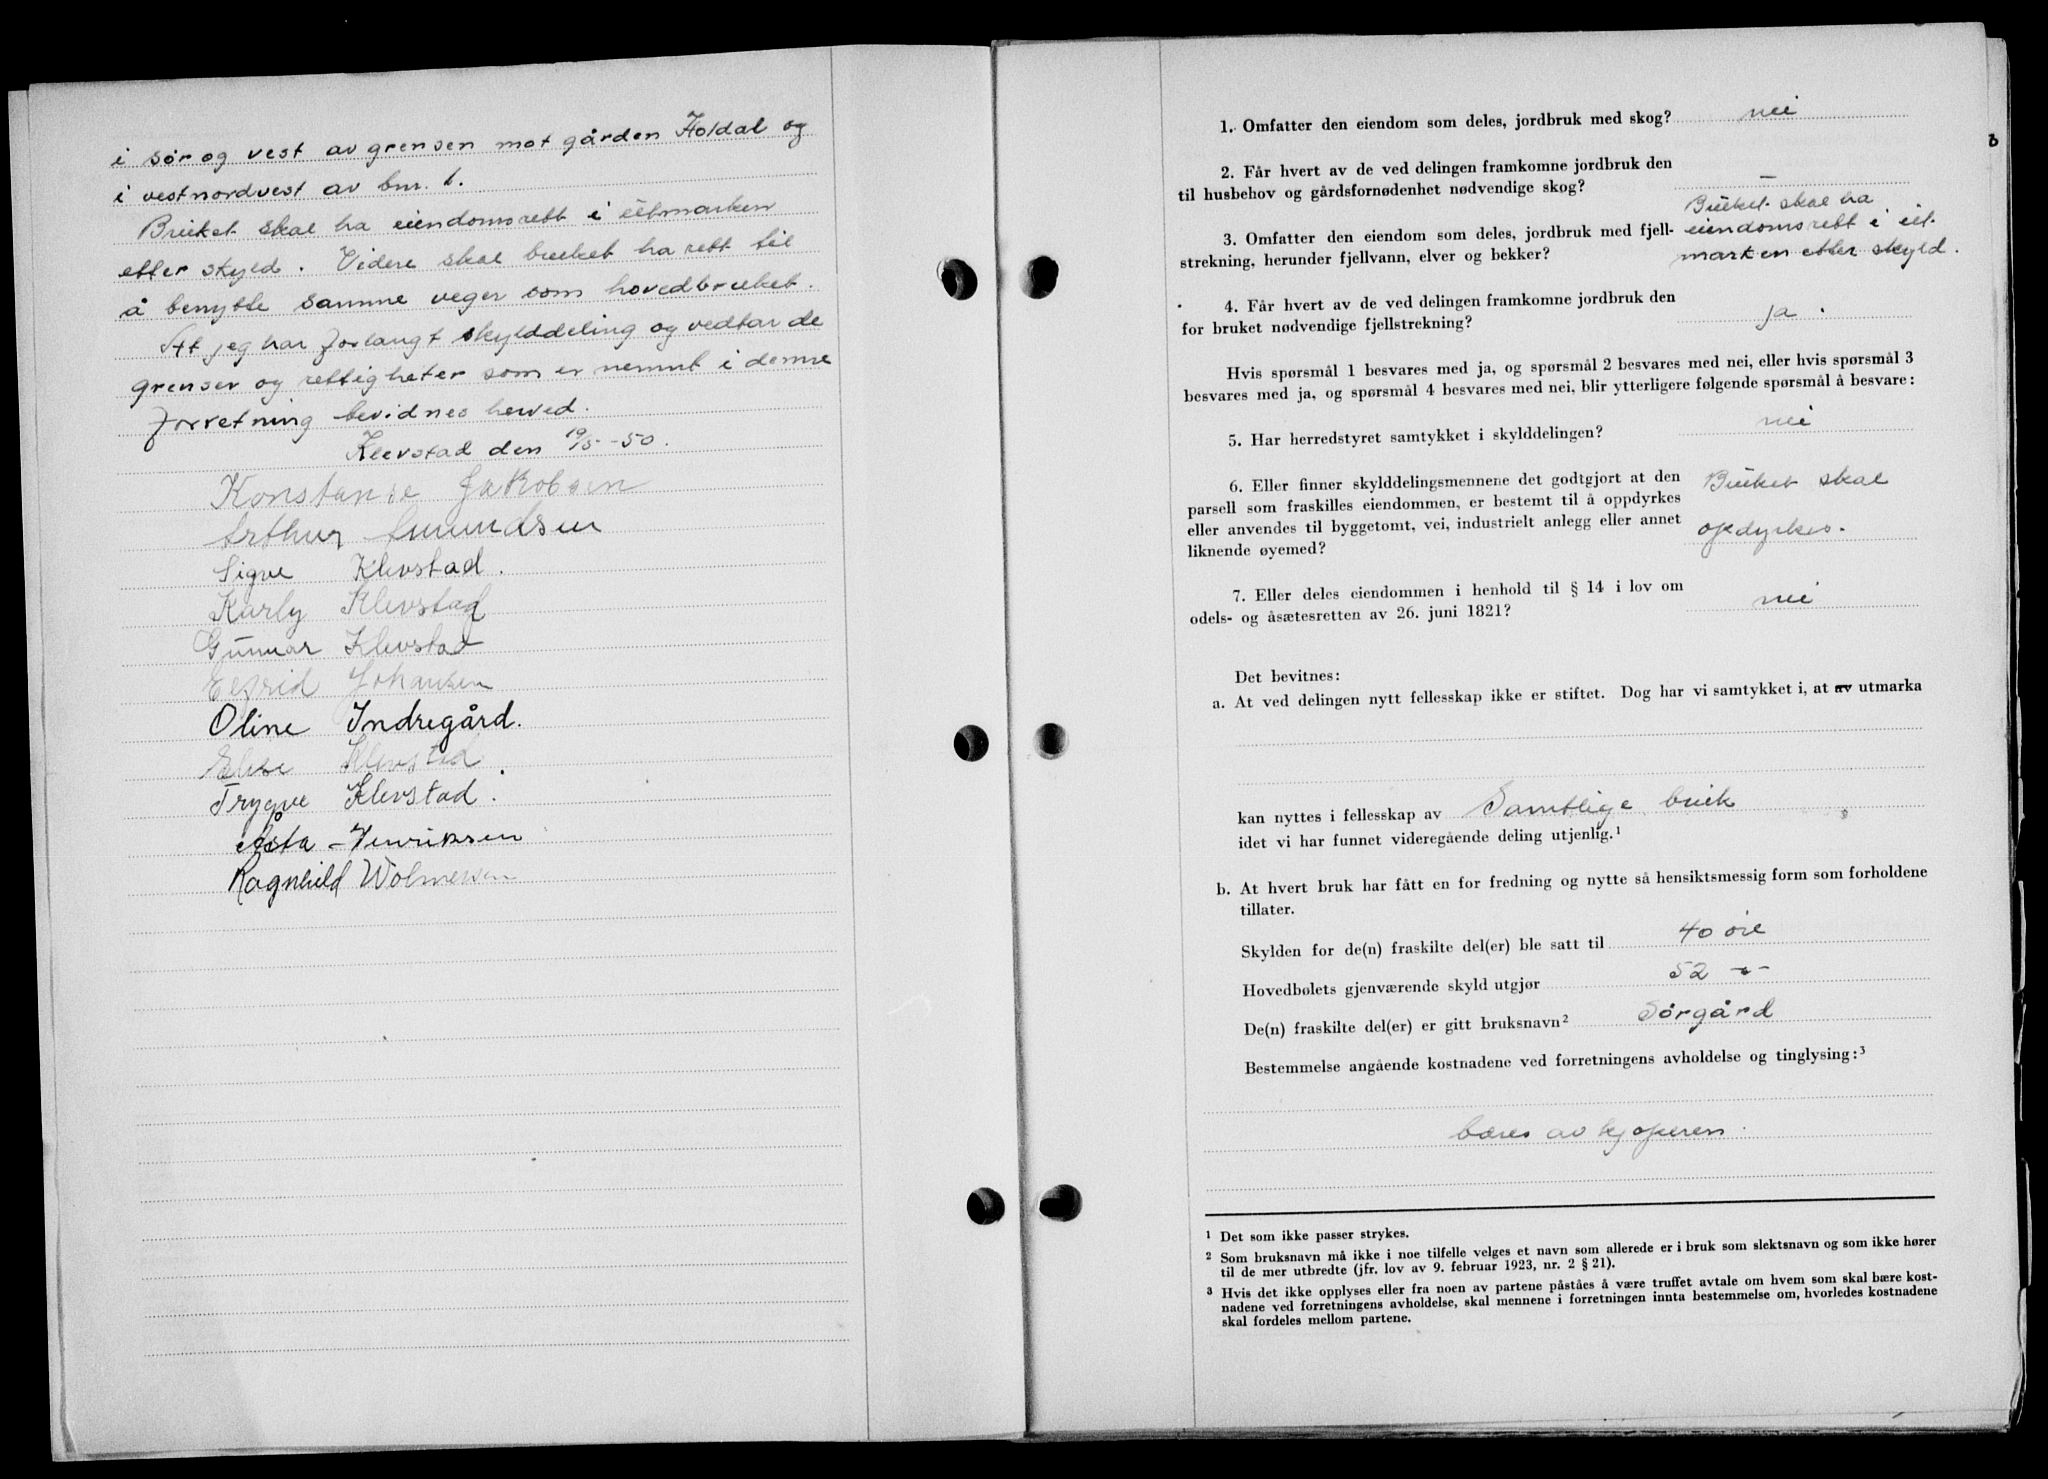 i sør og vest av grensen mot gården Holdal og
i vestnordvest av bnr. 1.
Bruket skal ha eiendomsrett i utmarken
etter skyld. Videre skal bruket ha rett til
å benytte samme veger som hovedbruket.
At jeg har forlangt skylddeling og vedtar de
grenser og rettigheter som er nemnt i denne
forretning bevidnes herved.
Klevstad den 19/5-50.
Konstanse Jakobsen
Arthur Amundsen
Sigve Klevstad.
Karly Klevstad
Gunnar Klevstad
Elfrid Johansen
Oline Indregård.
Elise Klevstad
Trygve Klevstad.
Åsta - Henriksen
Ragnhild Wolmersen
3
1. Omfatter den eiendom som deles, jordbruk med skog? nei
2. Får hvert av de ved delingen framkomne jordbruk den
til husbehov og gårdsfornødenhet nødvendige skog? —
3. Omfatter den eiendom som deles, jordbruk med fjell-
strekning, herunder fjellvann, elver og bekker?
Bruket skal ha
eiendomsrett i ut
marken etter skyld.
4. Får hvert av de ved delingen framkomne jordbruk den
for bruket nødvendige fjellstrekning? ja.
Hvis spørsmål 1 besvares med ja, og spørsmål 2 besvares med nei, eller hvis spørsmål 3
besvares med ja, og spørsmål 4 besvares med nei, blir ytterligere følgende spørsmål å besvare:
5. Har herredstyret samtykket i skylddelingen? nei
6. Eller finner skylddelingsmennene det godtgjort at den
parsell som fraskilles eiendommen, er bestemt til å oppdyrkes
eller anvendes til byggetomt, vei, industrielt anlegg eller annet
liknende øyemed?
Bruket skal
opdyrkes.
7. Eller deles eiendommen i henhold til § 14 i lov om
odels- og åsætesretten av 26. juni 1821? nei
Det bevitnes:
a. At ved delingen nytt fellesskap ikke er stiftet. Dog har vi samtykket i, at av utmarka
kan nyttes i fellesskap av Samtlige bruk
idet vi har funnet videregående deling utjenlig.¹
b. At hvert bruk har fått en for fredning og nytte så hensiktsmessig form som forholdene
tillater.
Skylden for de(n) fraskilte del(er) ble satt til 40 øre
Hovedbølets gjenværende skyld utgjør 52 -"-
De(n) fraskilte del(er) er gitt bruksnavn² Sørgård
Bestemmelse angående kostnadene ved forretningens avholdelse og tinglysing:³
bæres av kjøperen.
¹ Det som ikke passer strykes.
² Som bruksnavn må ikke i noe tilfelle velges et navn som allerede er i bruk som slektsnavn og som ikke hører
til de mer utbredte (jfr. lov av 9. februar 1923, nr. 2 § 21).
³ Hvis det ikke opplyses eller fra noen av partene påståes å være truffet avtale om hvem som skal bære kost-
nadene ved forretningens avholdelse, skal mennene i forretningen innta bestemmelse om, hvorledes kostnadene
skal fordeles mellom partene.